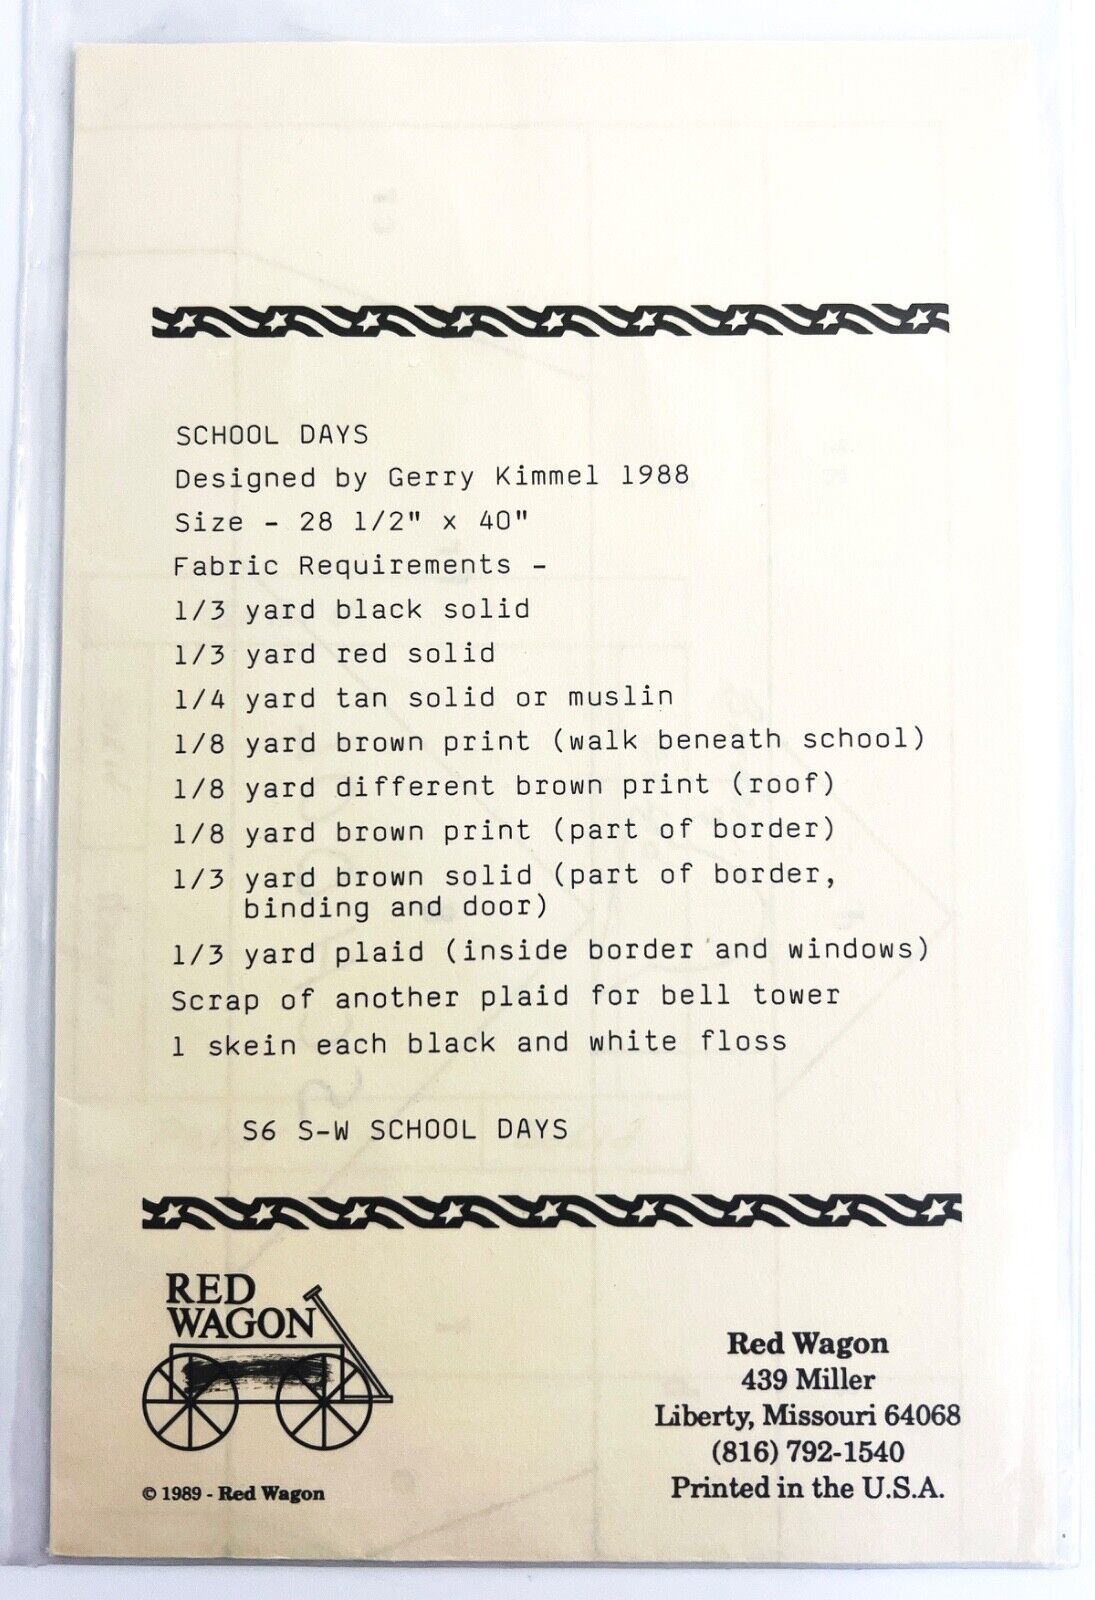 SCHOOL DAYS
Designed by Gerry Kimmel 1988
Size - 28 1/2" x 40"
Fabric Requirements -
1/3 yard black solid
1/3 yard red solid
1/4 yard tan solid or muslin
1/8 yard brown print (walk beneath school)
1/8 yard different brown print (roof)
1/8 yard brown print (part of border)
1/3 yard brown solid (part of border,
binding and door)
1/3 yard plaid (inside border and windows)
Scrap of another plaid for bell tower
1 skein each black and white floss
S6 S-W SCHOOL DAYS
RED
WAGON
© 1989 - Red Wagon
Red Wagon
439 Miller
Liberty, Missouri 64068
(816) 792-1540
Printed in the U.S.A.